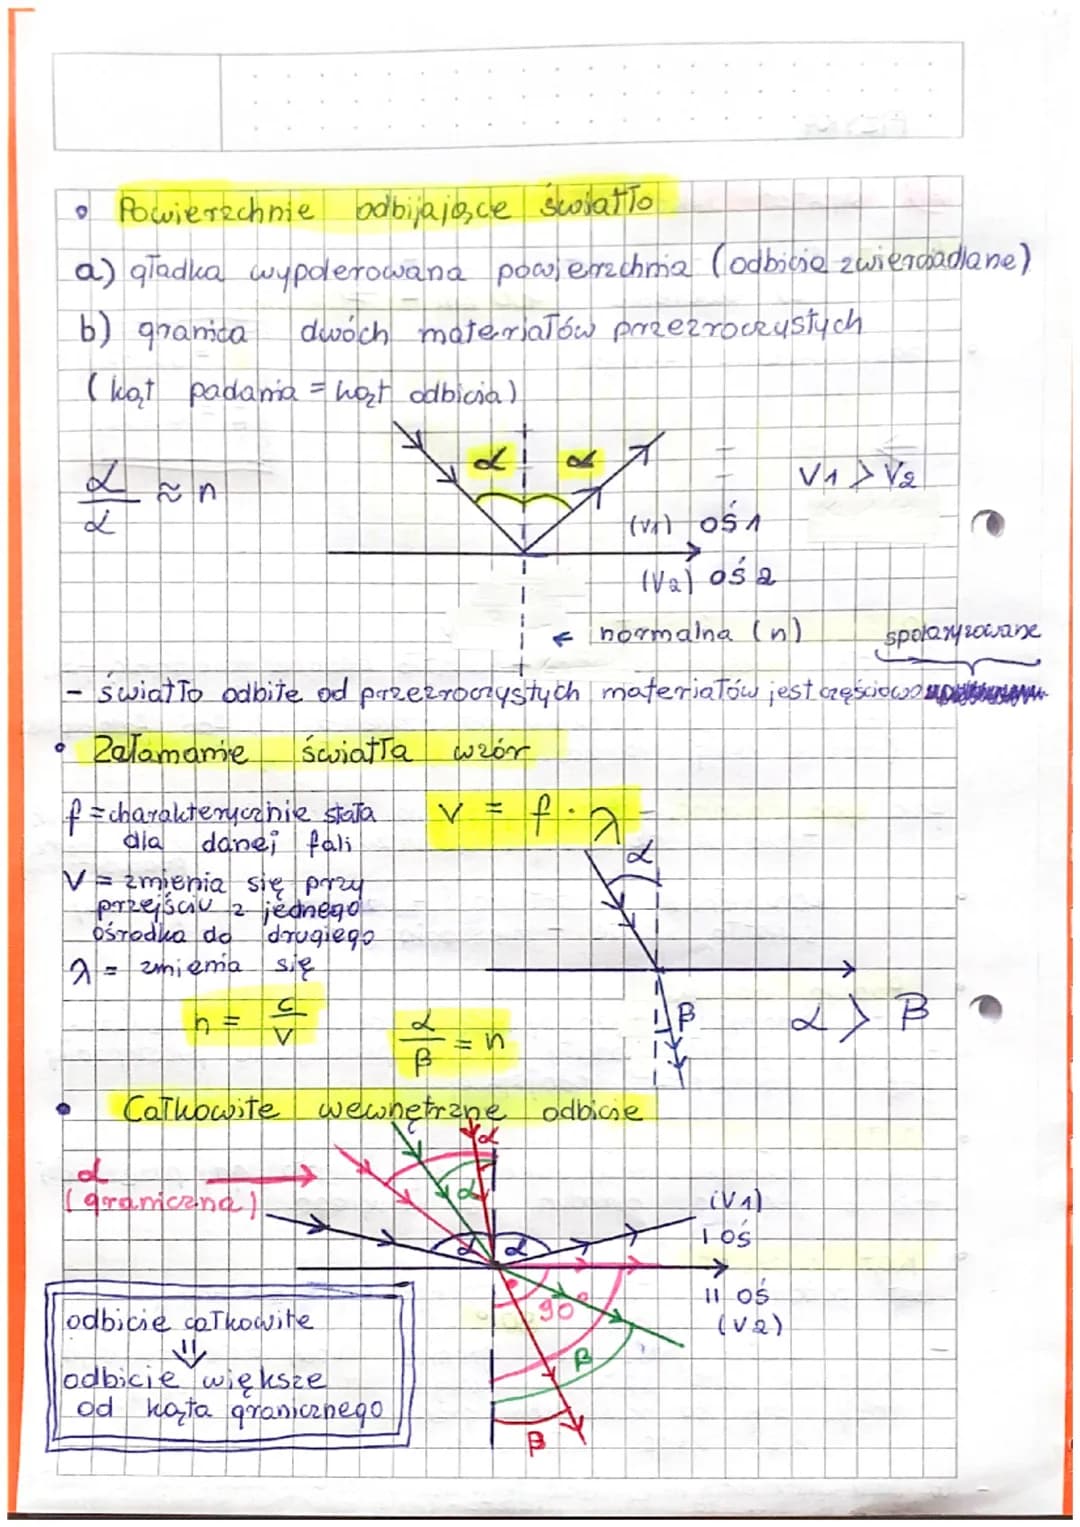 • Powierzchnie odbijające światło
a) gładka wypolerowana powierzchnia (odbicie zwierciadlane)
b) granica dwóch materiałów przezroczystych
(kąt padania = kąt odbicia)
α α
α/α ≈ n
V1 > V2
(V1) oś 1
(V2) oś 2
← normalna (n)
spolaryzowane
- światło odbite od przezroczystych materiałów jest częściowo
• Załamanie światła wzór
f = charakterycznie stała dla danej fali
V = f · λ
α
V = zmienia się przy
przejściu z jednego
ośrodka do drugiego
λ = zmienia się
n = c/V
α/β = n
β
α > β
• Całkowite wewnętrzne odbicie
α
α
(graniczna)
α
α α
(V1)
I oś
II oś
(V2)
90°
β
β
odbicie całkowite
⇓
odbicie większe
od kąta granicznego